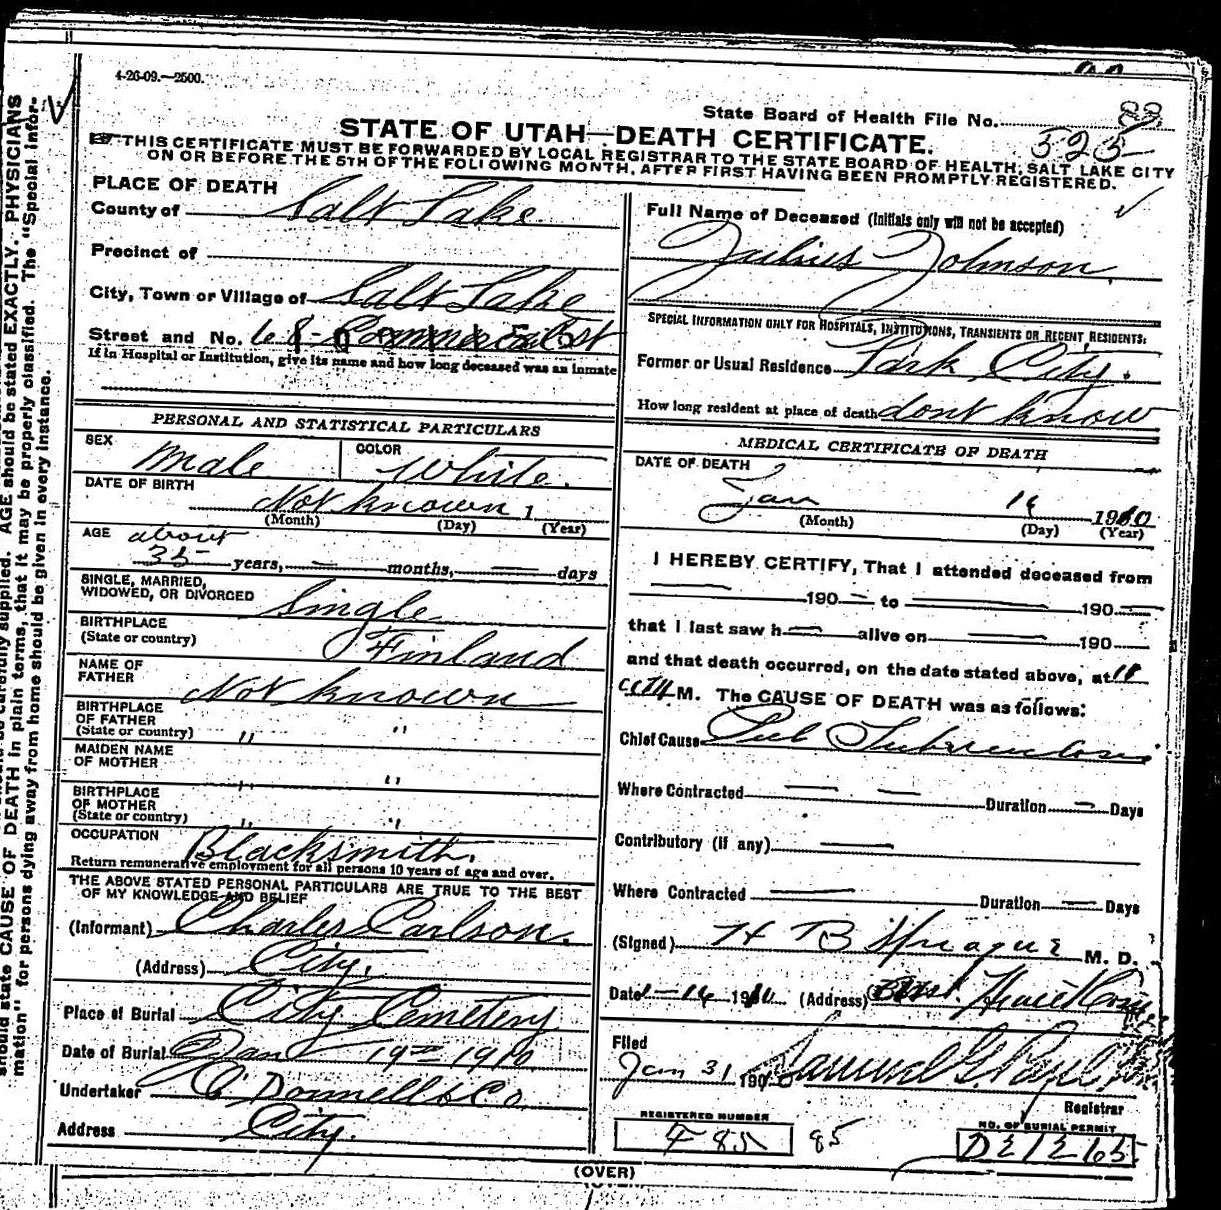 4-26-09.—2500.
State Board of Health File No.
88
525
STATE OF UTAH—DEATH CERTIFICATE.
THIS CERTIFICATE MUST BE FORWARDED BY LOCAL REGISTRAR TO THE STATE BOARD OF HEALTH, SALT LAKE CITY
ON OR BEFORE THE 5TH OF THE FOLLOWING MONTH, AFTER FIRST HAVING BEEN PROMPTLY REGISTERED.
PLACE OF DEATH
County of Salt Lake
Precinct of
City, Town or Village of Salt Lake
Street and No. 68 Commercial St
If in Hospital or Institution, give its name and how long deceased was an inmate
PERSONAL AND STATISTICAL PARTICULARS
SEX Male
COLOR White.
DATE OF BIRTH Not known 1
(Month) (Day) (Year)
AGE about
35 years, — months, — days
SINGLE, MARRIED,
WIDOWED, OR DIVORCED Single
BIRTHPLACE
(State or country) Finland
NAME OF
FATHER Not known
BIRTHPLACE
OF FATHER
(State or country) " "
MAIDEN NAME
OF MOTHER " "
BIRTHPLACE
OF MOTHER
(State or country) " "
OCCUPATION Blacksmith.
Return remunerative employment for all persons 10 years of age and over.
THE ABOVE STATED PERSONAL PARTICULARS ARE TRUE TO THE BEST
OF MY KNOWLEDGE AND BELIEF
(Informant) Charles Carlson.
(Address) City.
Place of Burial City Cemetery
Date of Burial Jan 19 1910
Undertaker O'Donnell & Co.
Address City.
Full Name of Deceased (Initials only will not be accepted)
Julius Johnson.
SPECIAL INFORMATION ONLY FOR HOSPITALS, INSTITUTIONS, TRANSIENTS OR RECENT RESIDENTS:
Former or Usual Residence Park City.
How long resident at place of death dont know
MEDICAL CERTIFICATE OF DEATH
DATE OF DEATH
Jan 1910
(Month) (Day) (Year)
I HEREBY CERTIFY, That I attended deceased from
— 190 — to — 190 —
that I last saw h — alive on — 190
and that death occurred, on the date stated above, at
M. The CAUSE OF DEATH was as follows:
Chief Cause Pul Tuberculosis
Where Contracted — — Duration — Days
Contributory (if any) —
Where Contracted — Duration — Days
(Signed) H B Sprague M. D.
Date 1-14 1910 (Address)
Filed
Jan 31 190 Samuel G. Paul
Registrar
REGISTERED NUMBER
F 85
85
NO. OF BURIAL PERMIT
D21265
(OVER)
should be carefully supplied. AGE should be stated EXACTLY. PHYSICIANS
should state CAUSE OF DEATH in plain terms, that it may be properly classified. The "Special Infor-
mation" for persons dying away from home should be given in every instance.